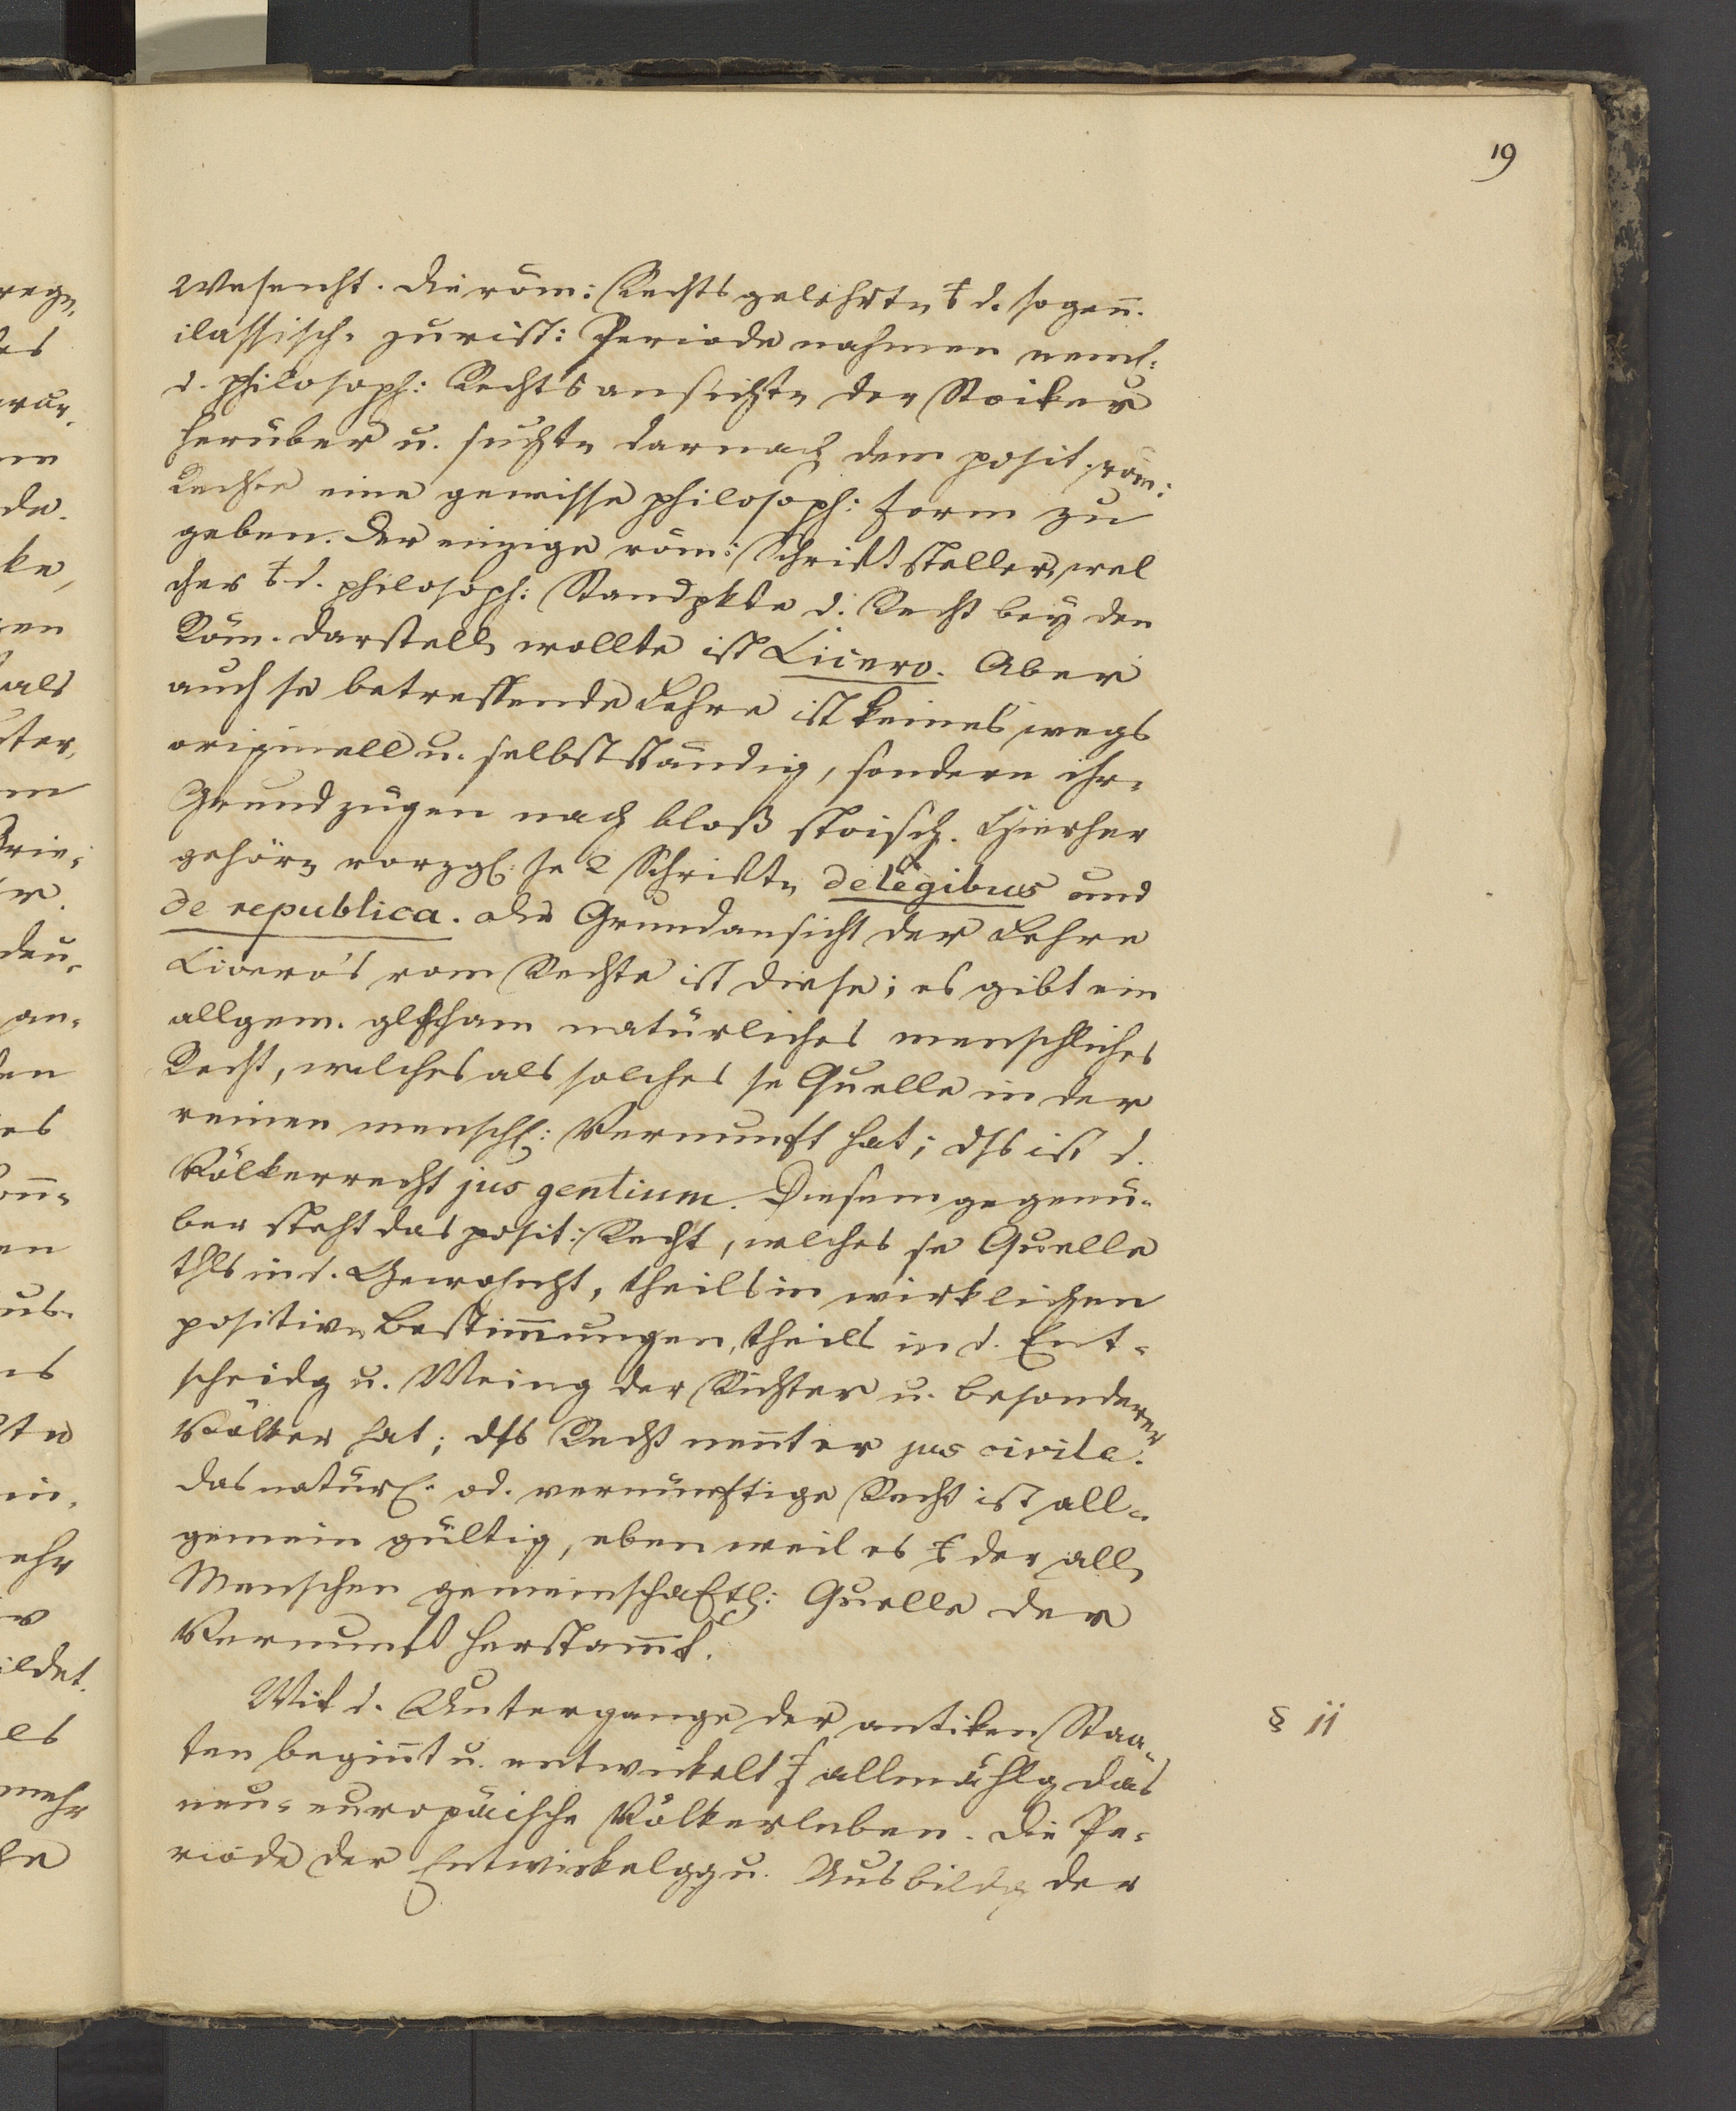 19
Wesenht. Die röm: Rechtsgelehrtn d. sogen̄.
classisch. jurist: Periode nahmen neml:
d. philosoph: Rechtsansichtn der Stoiker
herüber u. suchtn darnach dem posit. röm:
Rechte eine gewisse philosoph: Form zu
geben. Der einzige röm: Schriftsteller, wel
cher d. philosoph: Standpkte d. Recht bey den
Röm. darstelln wollte ist Cicero. Aber
auch se betreffende Lehre ist keineswegs
originell u. selbstständig, sondern ihr.
Grundzügen nach bloß stoisch. Hierher
gehörn vorzgl: se 2 Schriftn de legibus und
de republica. Die Grundansicht der Lehre
Cicero's vom Rechte ist diese; es gibt ein
allgem. glchsam natürliches menschliches
Recht, welches als solches se Quelle in der
reinen menschl: Vernunft hat; dss ist d.
Völkerrecht jus gentium. Diesem gegenü-
ber steht das posit: Recht, welches se Quelle
thls in d. Gewohnht, theils in wirklichen
positivn Bestim̄ungen, theils in d. Ent-
scheidg u. Meing der Richter u. besonderer
Völker hat; dss Recht nen̄t er jus civile.
Das natürl. od. vernünftige Recht ist all-
gemein gültig, eben weil es der alln
Menschen gemeinschaftl: Quelle der
Vernunft herstam̄t.
Mit d. Untergange der antiken Staa-
§ 11
ten begin̄t u. entwickelt allmählg das
neu-europäische Völkerleben. Die Pe-
riode der Entwickelgg u. Ausbildg der